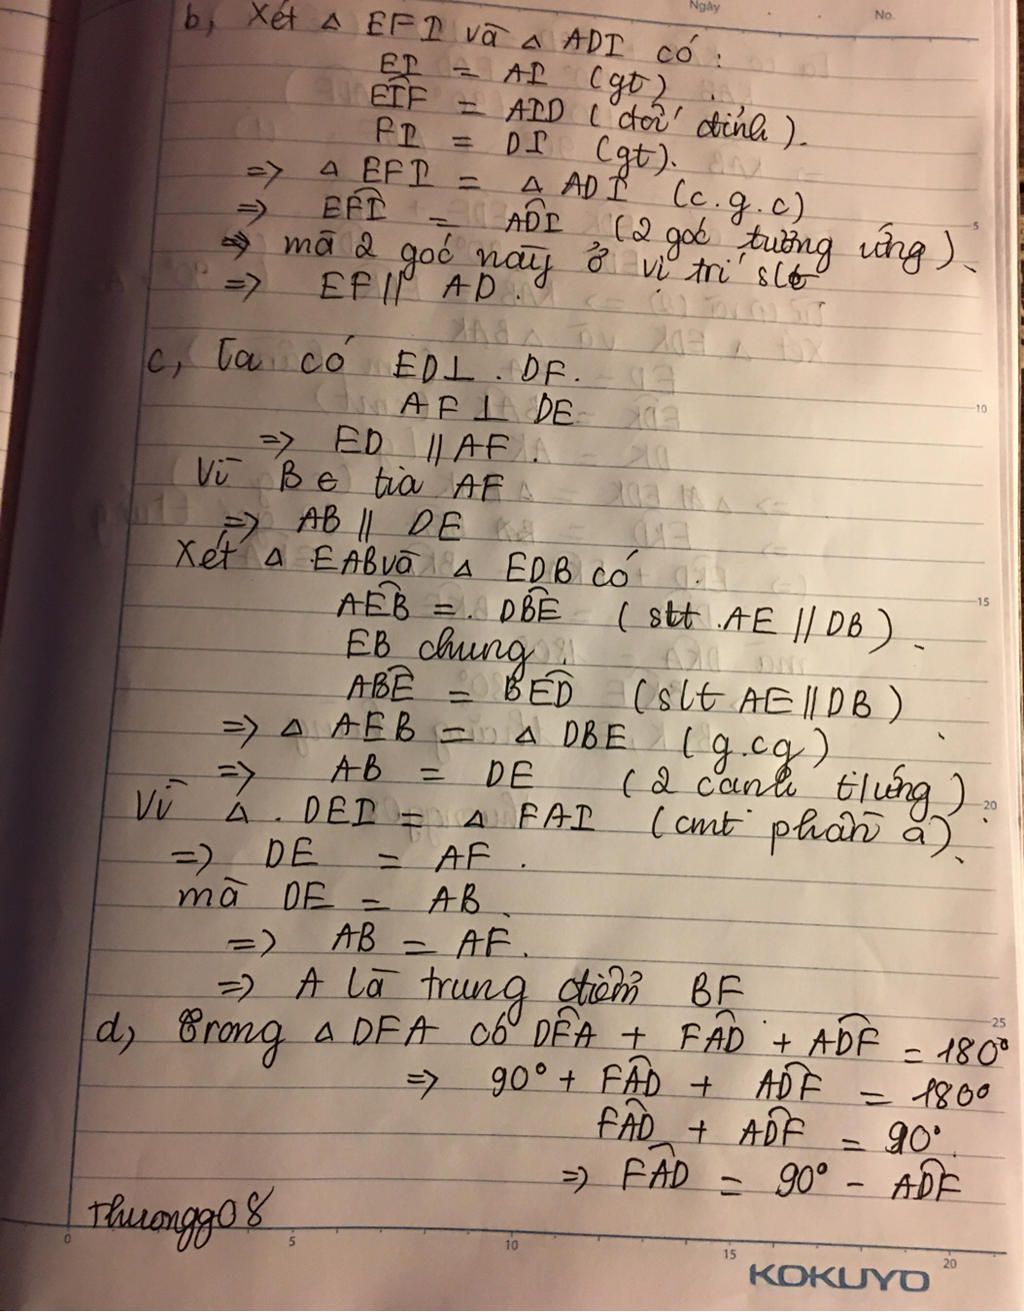 Ngày
No.
b, Xét Δ EFI và Δ ADI có :
EI = AI (gt)
EIF = AID (đối đỉnh).
FI = DI (gt).
=> Δ EFI = Δ ADI (c.g.c)
=> EFI = ADI (2 góc tương ứng).
=> mà 2 góc này ở vị trí slt
=> EF // AD.
c, Ta có ED ⊥ . DF.
AF ⊥ DE
=> ED // AF.
Vì B ∈ tia AF
=> AB // DE
Xét Δ EAB và Δ EDB có
AEB = . DBE ( slt .AE // DB ).
EB chung.
ABE = BED (slt AE // DB)
=> Δ AEB = Δ DBE (g.cg)
=> AB = DE (2 cạnh t/ứng)
Vì Δ . DEI = Δ FAI (cmt phần a).
=> DE = AF.
mà DE = AB.
=> AB = AF.
=> A là trung điểm BF
d, Trong Δ DFA có DFA + FAD + ADF = 180°
=> 90° + FAD + ADF = 180°
FAD + ADF = 90°.
=> FAD = 90° - ADF
thuongg08
5
10
15
20
25
0 5 10 15 20
KOKUYO